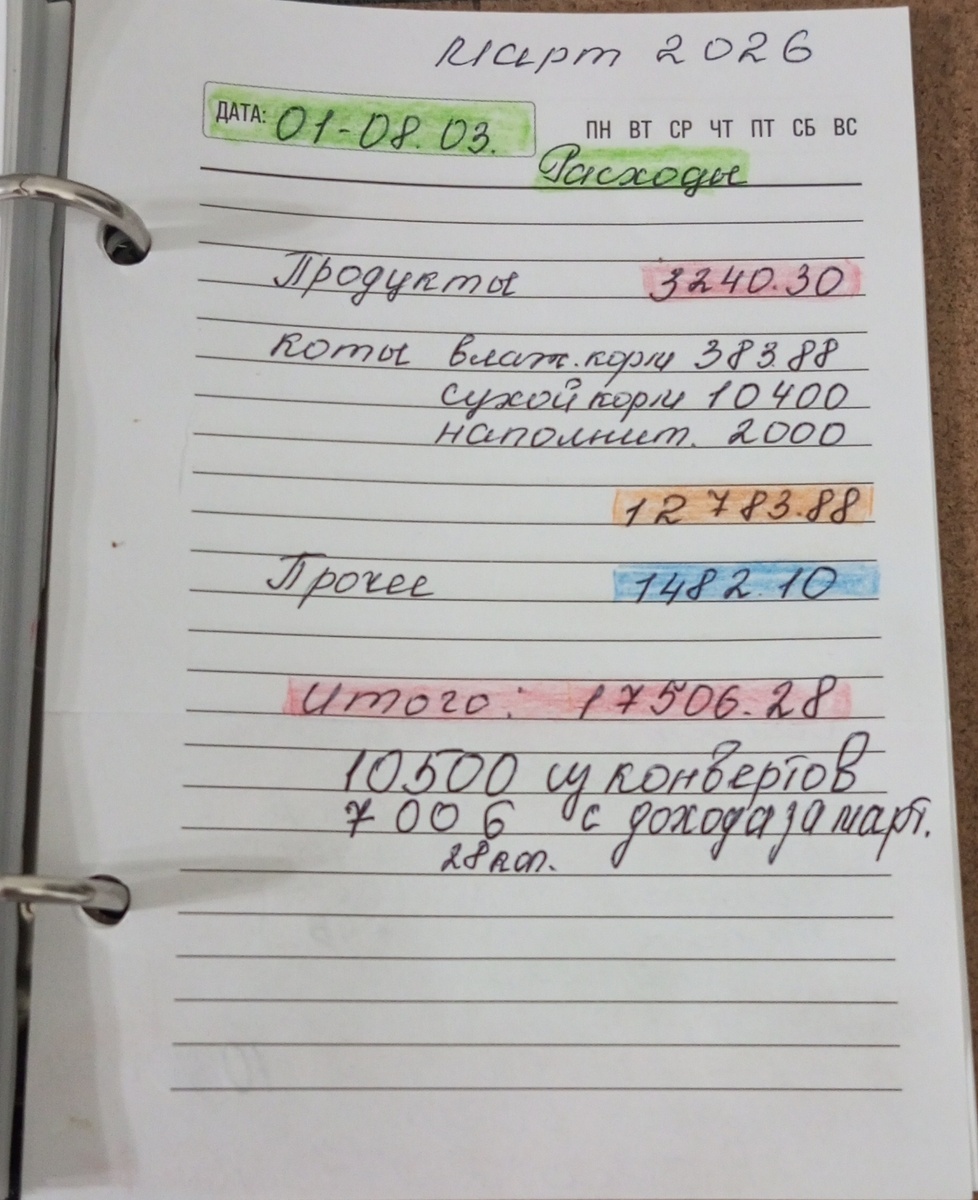 Март 2026
ДАТА: 01-08.03.
ПН ВТ СР ЧТ ПТ СБ ВС
Расходы
Продукты 3240.30
Коты влаж. корм 383.88
сухой корм 10400
наполнит. 2000
12 783.88
Прочее 1482.10
Итого: 17506.28
10500 из конвертов
7006 с дохода за март.
28 коп.